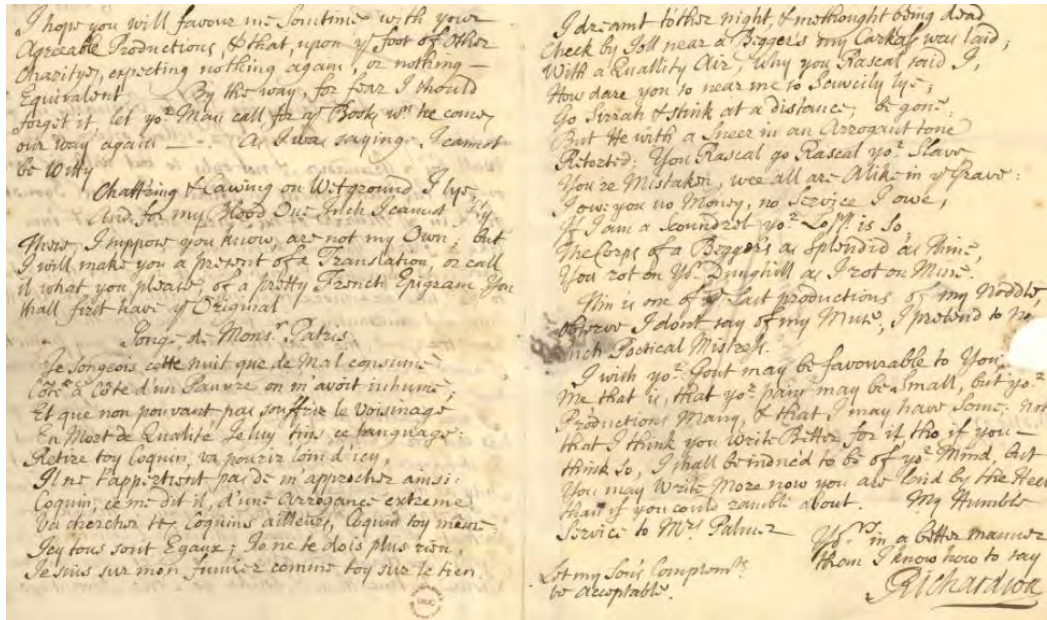 I hope you will favour me Somtime with your
Agreeable Productions, & that, upon ye foot of Other
Charitys, expecting nothing again, or nothing —
Equivalent By the way, for fear I should
forget it, let yor Man call for ye Book, wn he comes
our way again — . As I was saying. I cannot
be Witty
Chatt'ring & Cawing on Wet ground I lye,
And for my Blood One Inch I cannot fly
These I suppose you know, are not my Own; but
I will make you a present of a Translation, or call
it what you please, of a pretty French Epigram, You
shall first have ye Original
Songe de Monsr Patris
Je Songeois cette nuit que de Mal consumé
Côte à Côte d'un Pauvre on m avoit inhumé,
Et que non pouvant pas souffrir le Voisinage
En Mort de Qualité Je luy tins ce language:
Retire toy Coquin, va pourir loin d'icy,
Il ne t'appertient pas de m approcher ainsi
Coquin, ce me dit il, d'une Arrogance extreme
Va chercher tes Coquins ailleurs, Coquin toy meme
Icy tous sont Egaux; Je ne te dois plus rien,
Je suis sur mon fumier comme toy sur le tien.
I dreamt t'other night, & methought being dead
Cheek by Joll near a Begger's my Carkass was laid;
With a Quallity Air, Why you Rascal said I,
How dare you so near me so Sawcily lye;
Go Sirrah & stink at a distance, be gone.
But He with a Sneer in an Arrogant tone
Retorted; You Rascal go Rascal yor Slave
You're Mistaken, wee all are Alike in ye Grave:
I owe you no Money, no Service I owe,
If I am a Scoundrel yor Lopp is So,
The Corps of a Begger's as Splendid as thine,
You rot on Yor Dunghill as I rot on Mine.
This is one of ye Last productions of my Noddle,
observe I don't say of my Muse, I pretend to No
such Poetical Mistress.
I wish yor Gout may be favourable to You
me that is, that yor pain may be Small, but yor
Productions Many, & that I may have Some. Not
that I think you Write Better for it, tho if you —
think So, I shall be induc'd to be of yor Mind, but
You may Write More now you are laid by the Heel
than if you could ramble about. My Humble
Service to Mrs Palmer
Yors in a better manner
than I know how to say
JRichardson
Let my Son's Complemts
be acceptable.